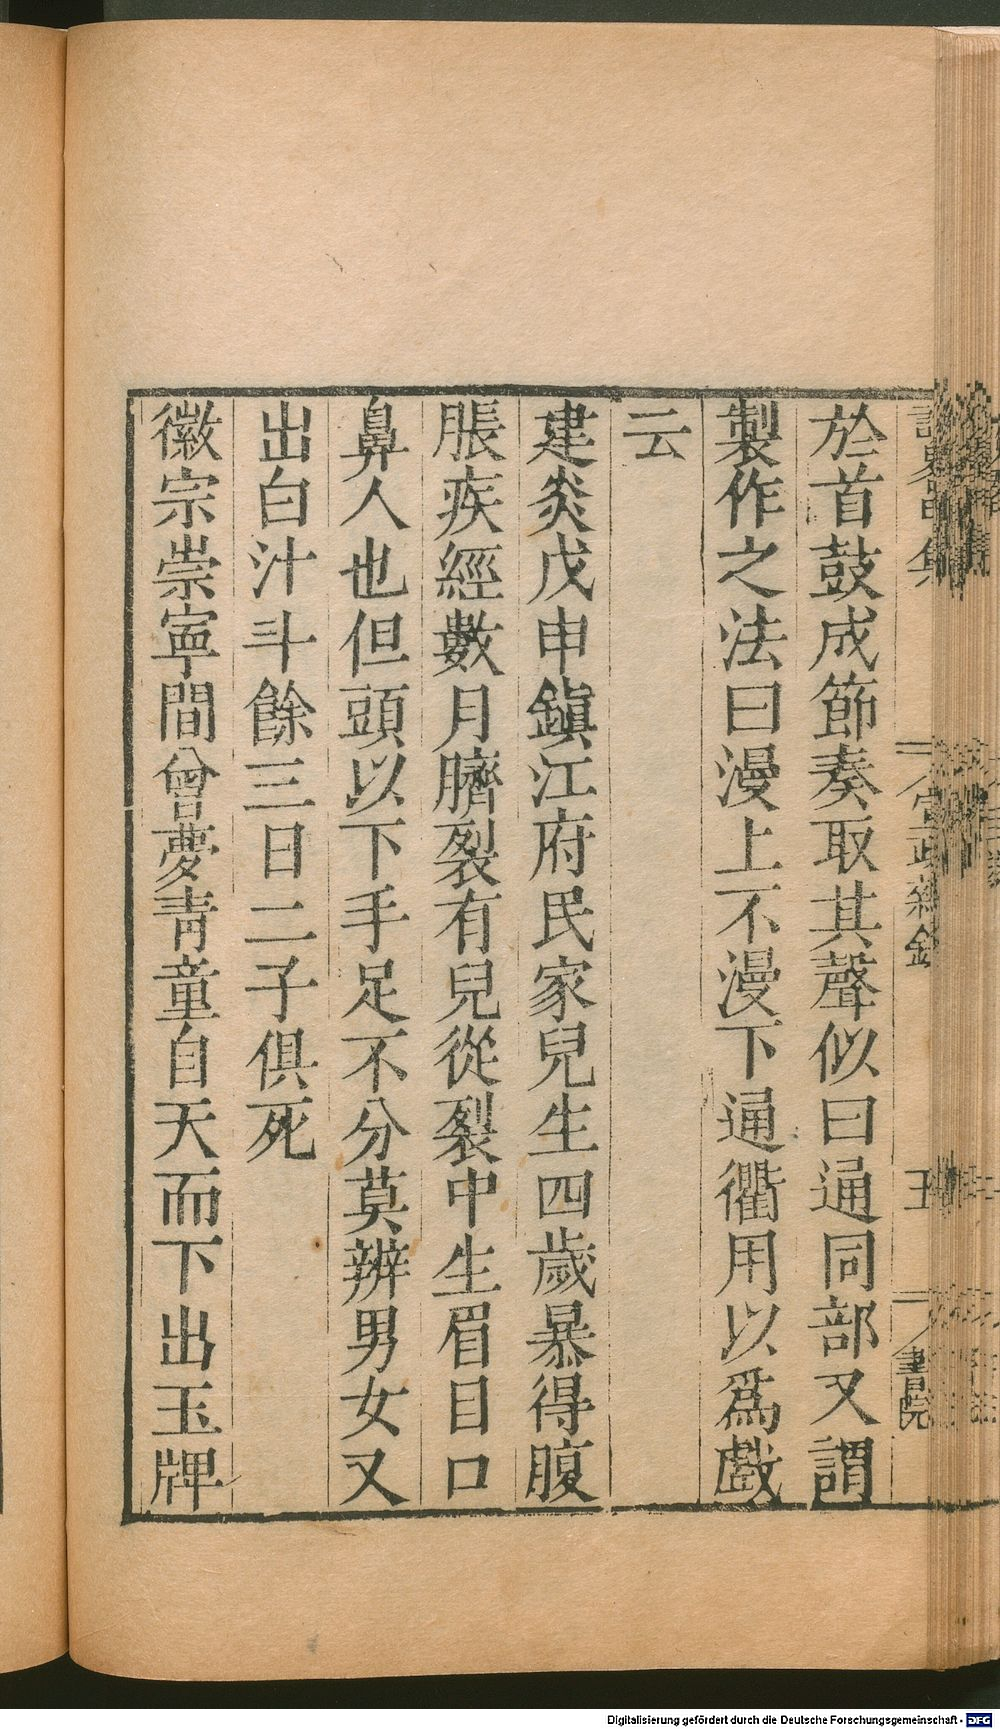 於首鼓成節奏取其聲似曰通同部又謂
製作之法曰漫上不漫下通衢用以爲戲
云
建炎戊申鎭江府民家兒生四歲暴得腹
脹疾經數月臍裂有兒從裂中生眉目口
鼻人也但頭以下手足不分莫辨男女又
出白汁斗餘三日二子俱死
徽宗崇寧間曾夢青童自天而下出玉牌
書院
Digitalisierung gefördert durch die Deutsche Forschungsgemeinschaft - DFG